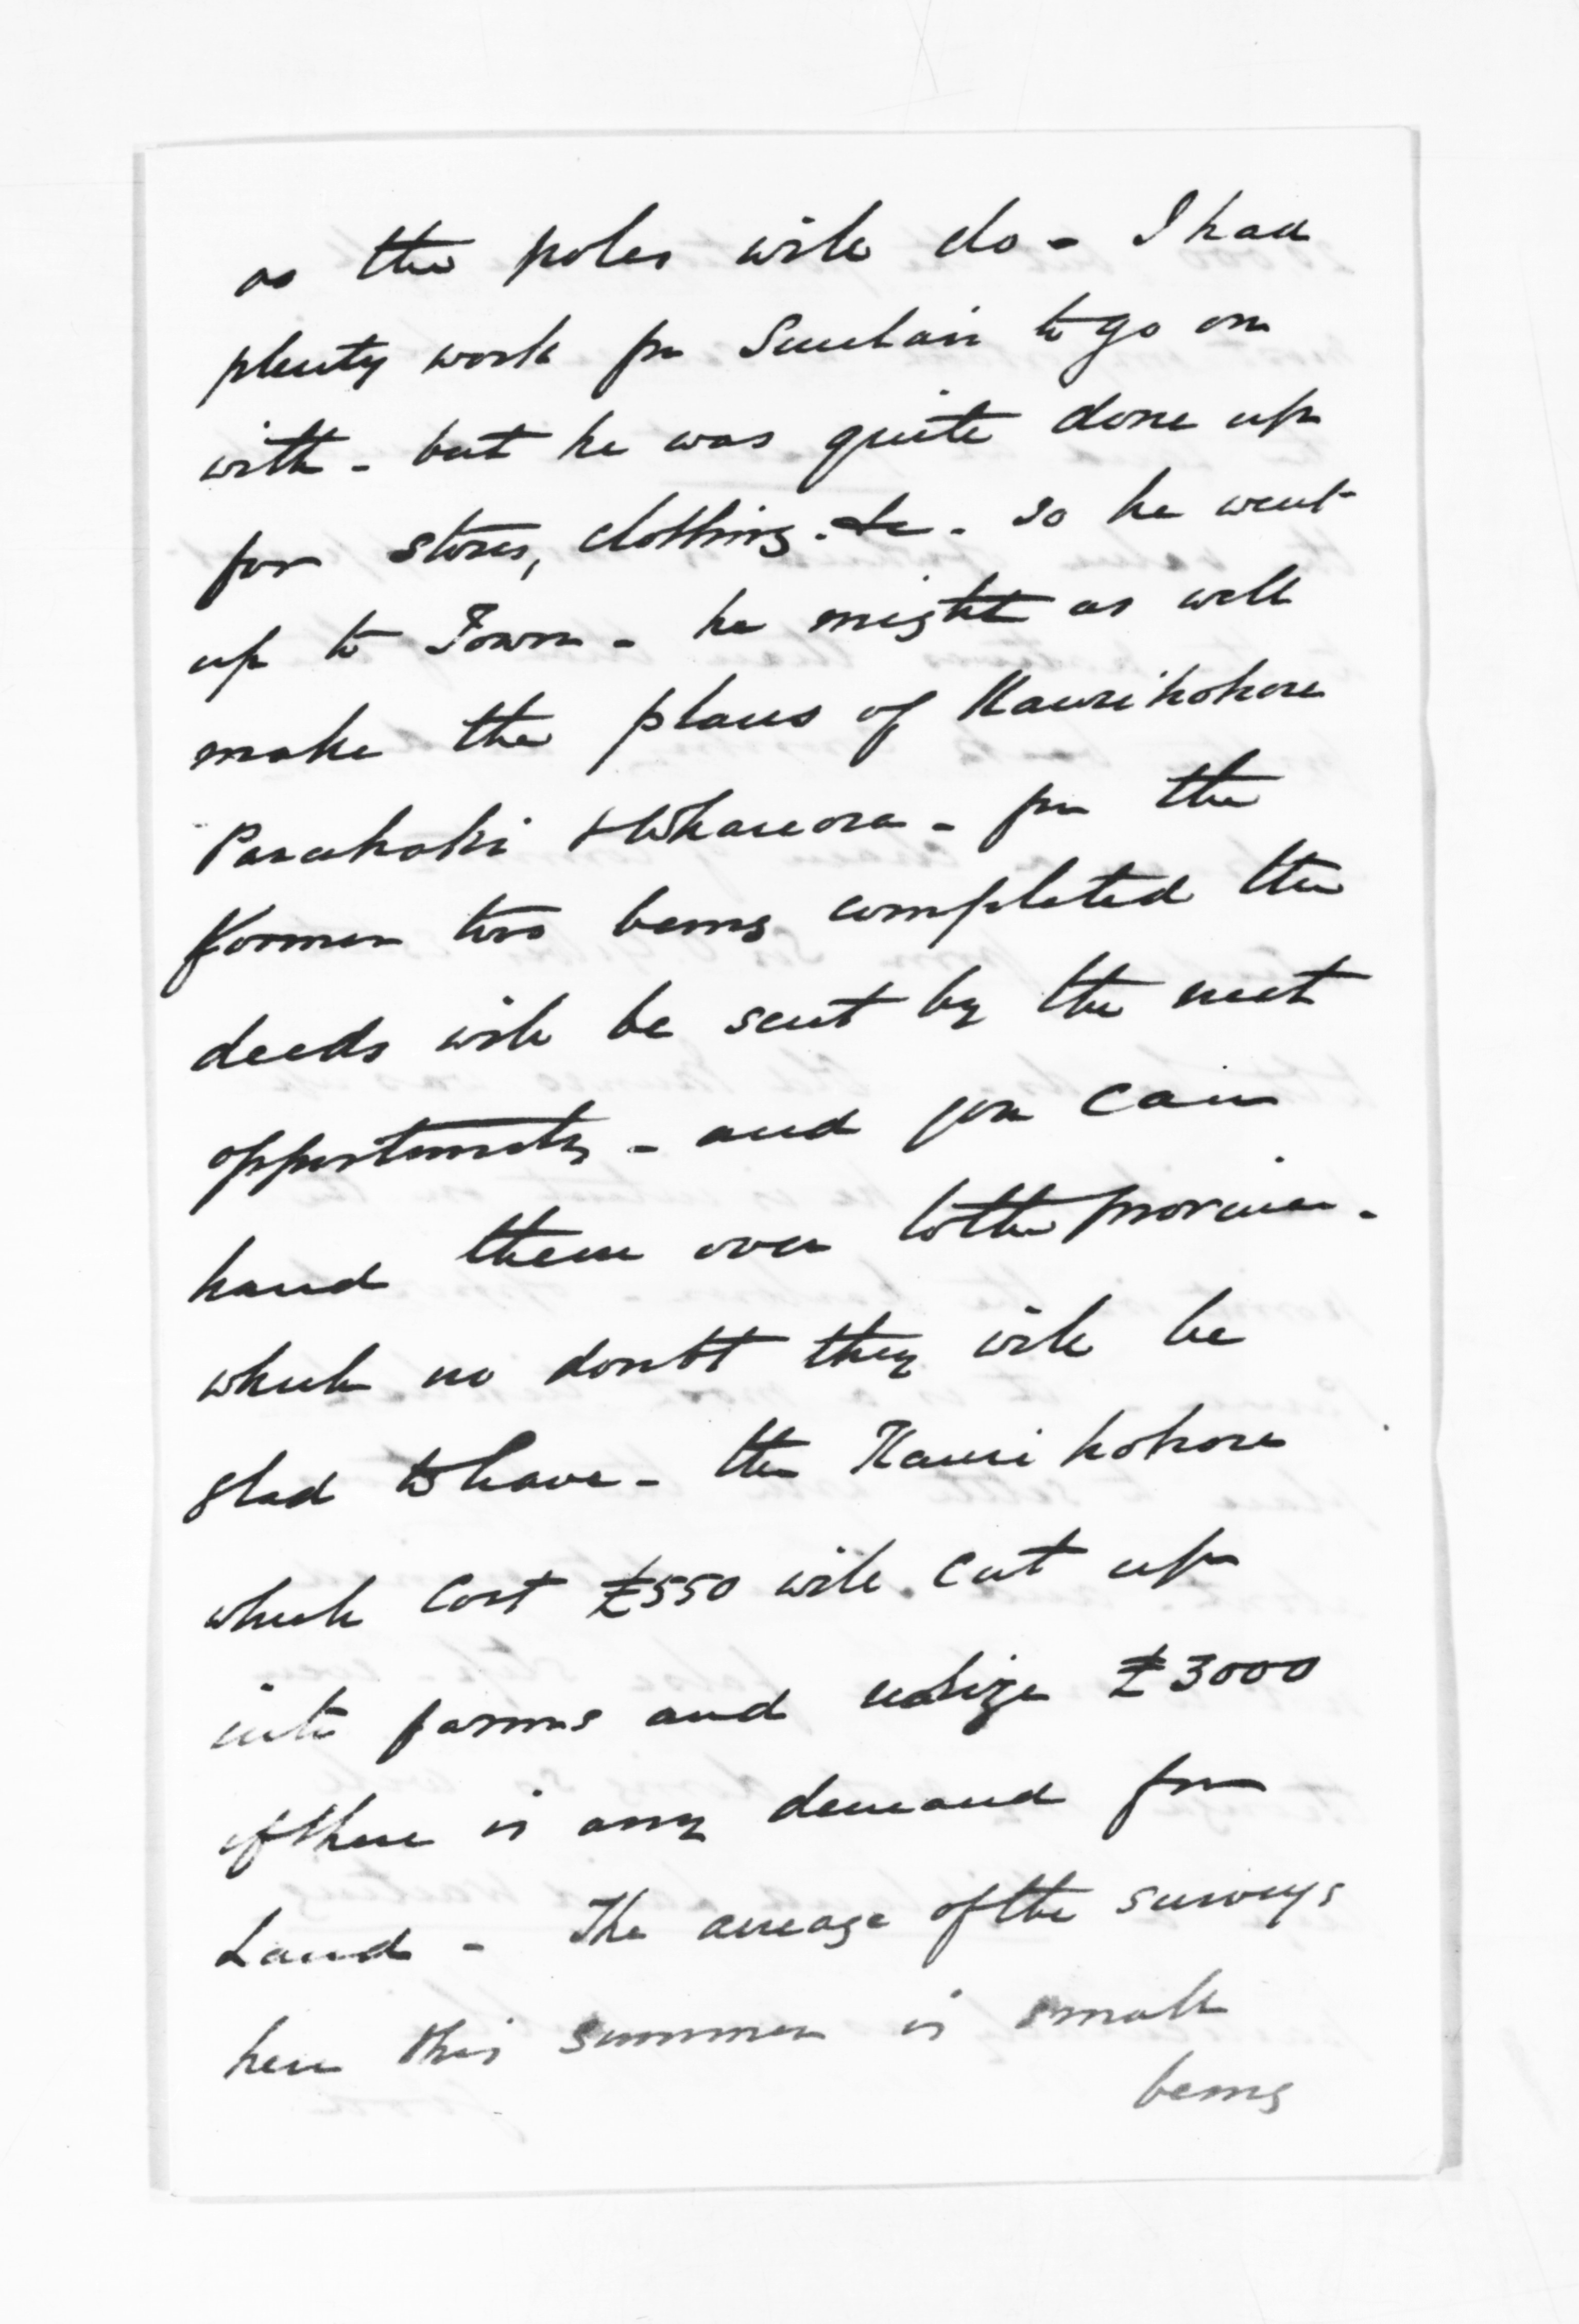 as the poles will do - I had
plenty work for Sinclair to go on
with - but he was quite done up
for stores, clothing. &c - so he went
up to Town - he might as well
make the plans of Kaurikohore
Parahaki & Whareora - for the
former two being completed the
deeds will be sent by the next
opportunity - and you can
hand them over to the province -
which no doubt they will be
glad to have - the Kauri kohore
which cost £550 will cut up
into farms and realize £3000
if there is any demand for
Land - The acreage of the surveys
here this summer is small
being